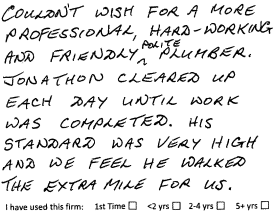 COULDN'T WISH FOR A MORE
PROFESSIONAL, HARD-WORKING
AND FRIENDLY ^POLITE PLUMBER.
JONATHON CLEARED UP
EACH DAY UNTIL WORK
WAS COMPLETED. HIS
STANDARD WAS VERY HIGH
AND WE FEEL HE WALKED
THE EXTRA MILE FOR US.
I have used this firm: 1st Time ☐ <2 yrs ☐ 2-4 yrs ☐ 5+ yrs ☐